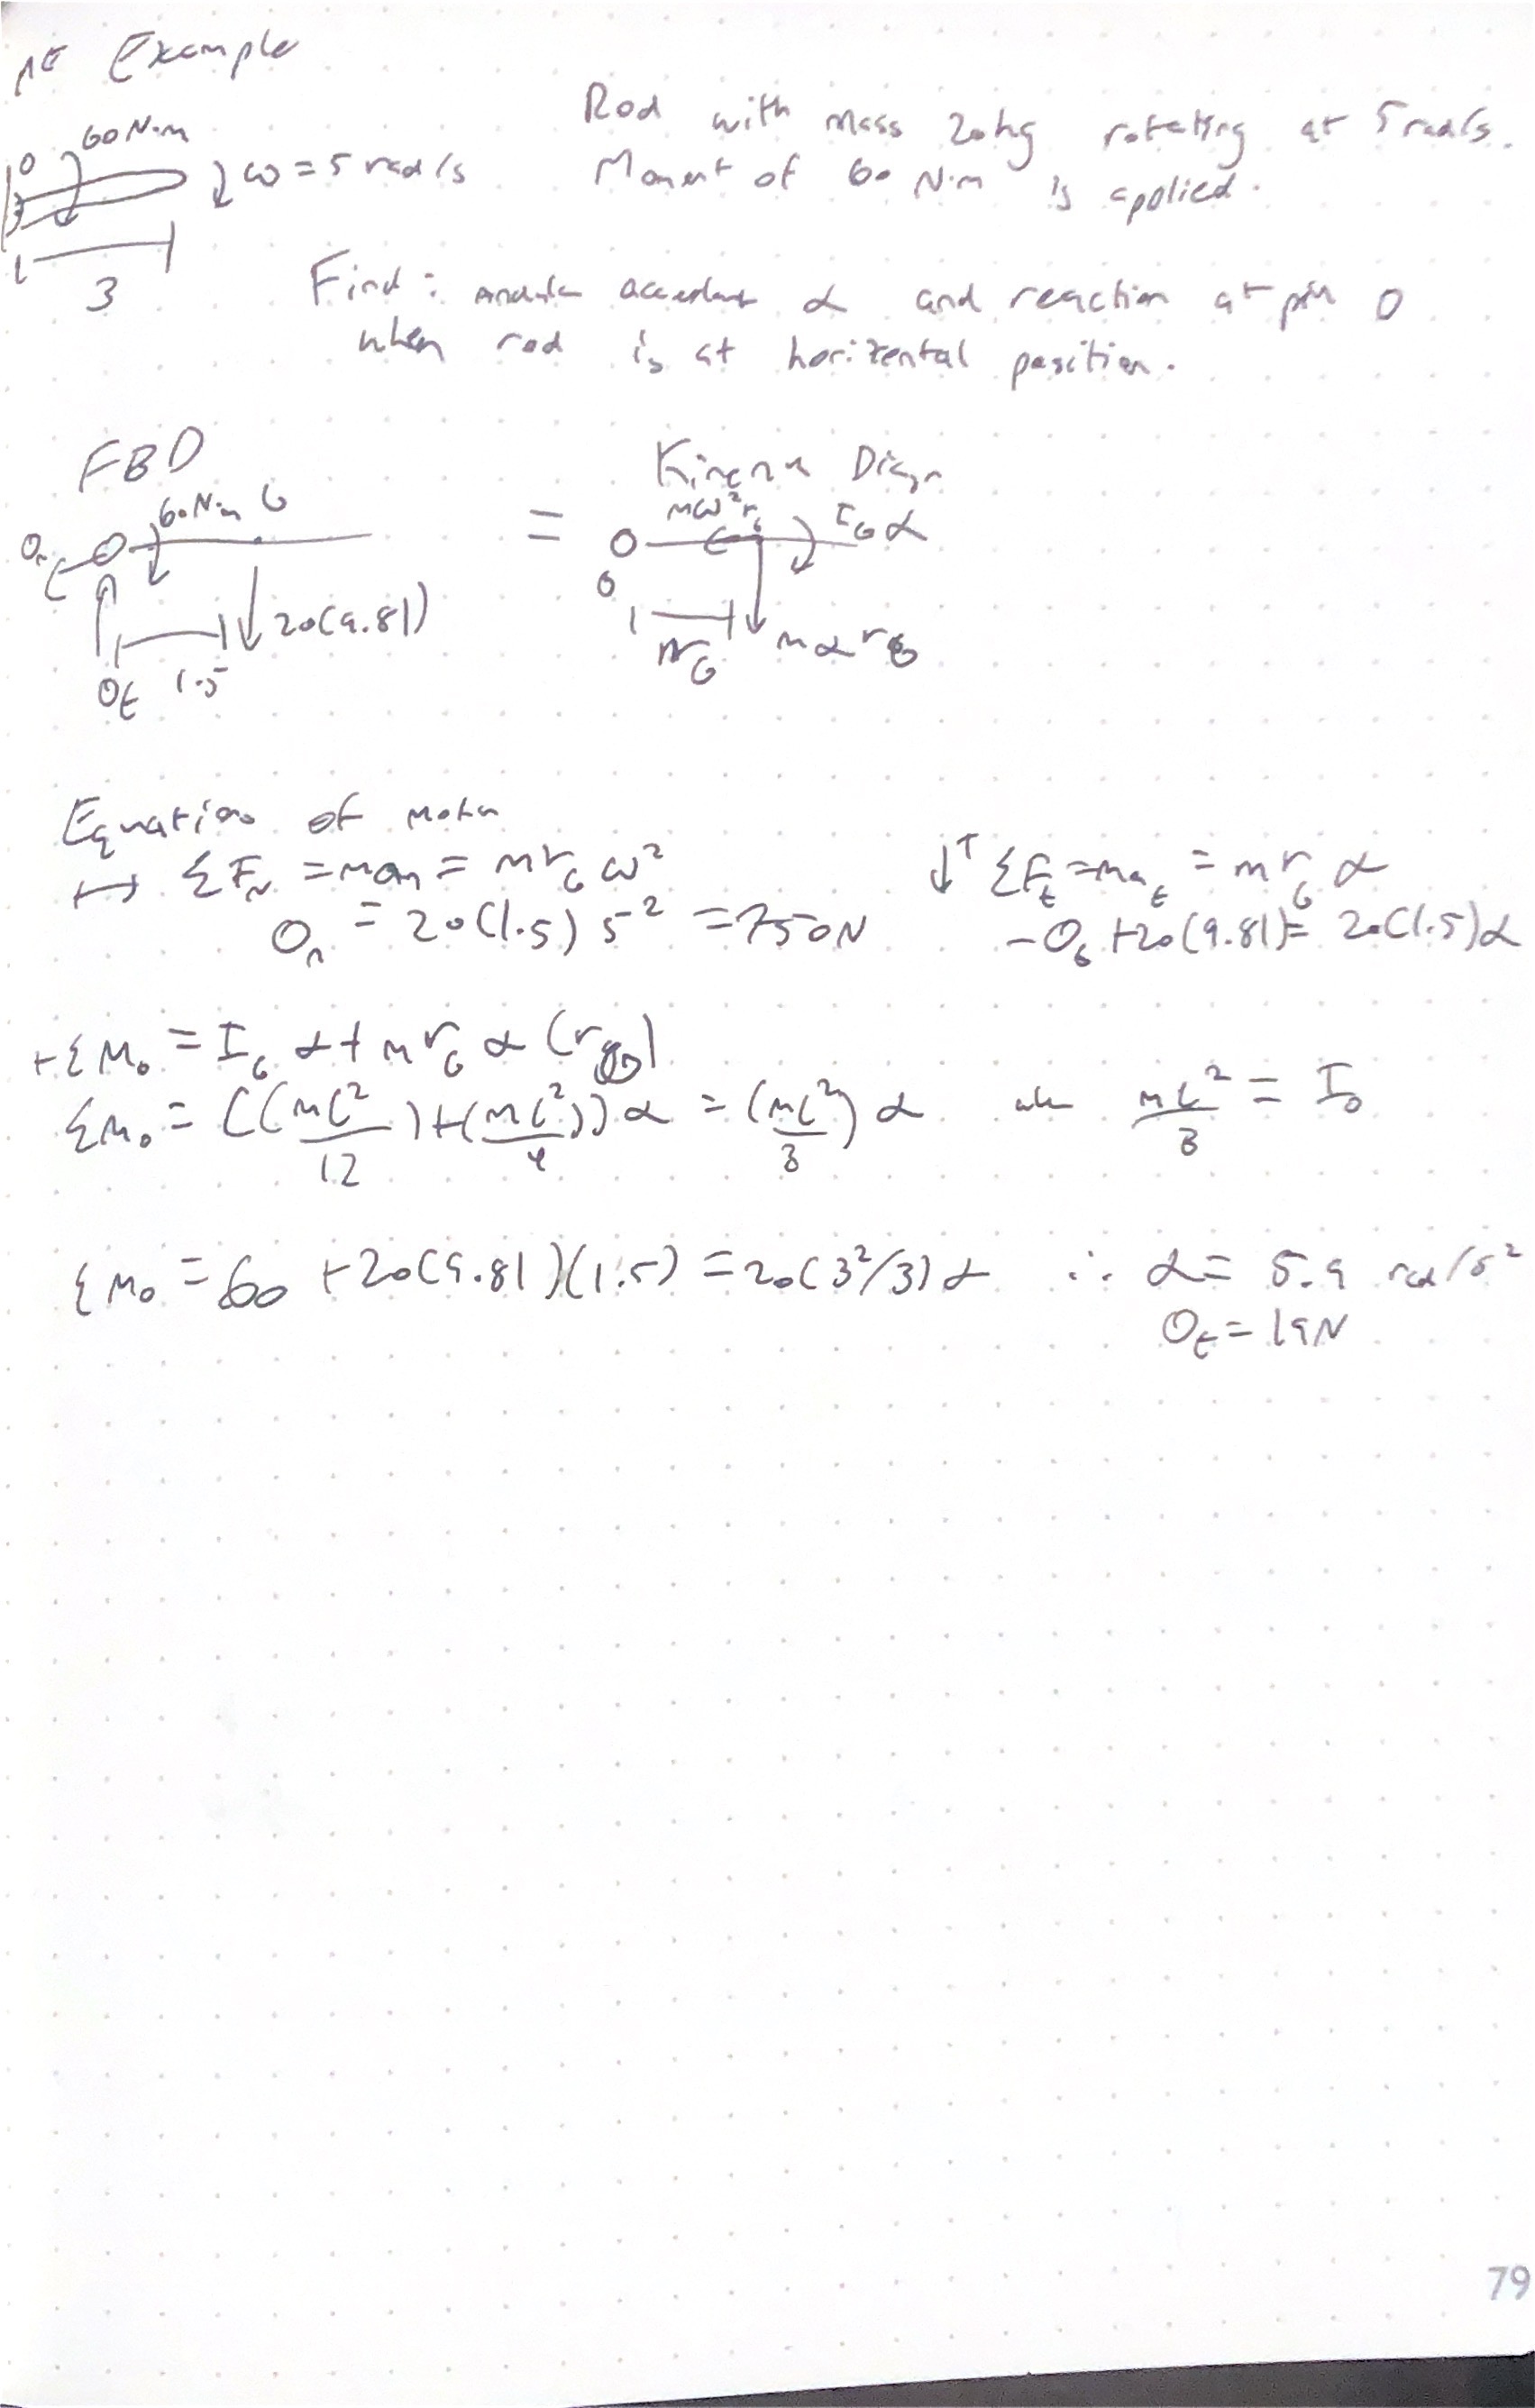 Example
O 60 N·m
ω = 5 rad/s
3
Rod with mass 20kg rotating at 5 rad/s.
Moment of 60 N·m is applied.
Find: α and reaction at pin O
when rod is at horizontal position.
FBD
60 N·m G
On
20(9.81)
Ot 1.5
=
Diagr
mω²rG IGα
O
rG mαrG
Equation of motn
← ΣFn = man = mrGω²
On = 20(1.5)5² = 750N
↓+ ΣFt = mat = mrGα
-Ot +20(9.81) = 20(1.5)α
+ΣMo = IGα + mrGα(rG)
ΣMo = ((ml²/12)+(ml²/4))α = (ml²/3)α ml²/3 = Io
ΣMo = 60 +20(9.81)(1.5) = 20(3²/3)α ∴ α = 5.9 rad/s²
Ot = 19N
79